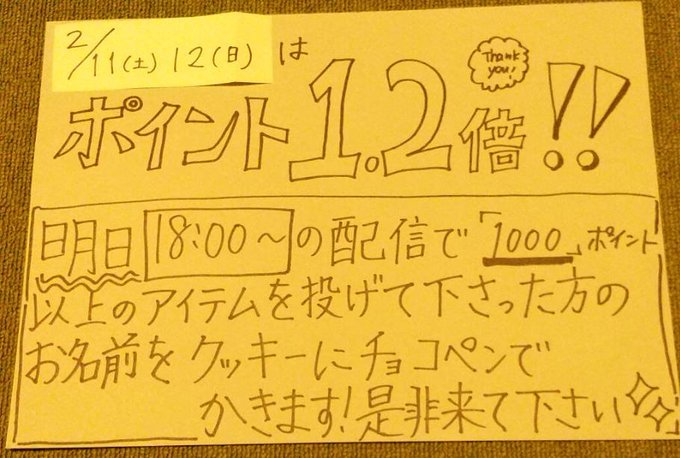 2/11(土) 12(日)は
Thank you!
ポイント1.2倍!!
明日 18:00〜の配信で「1000」ポイント
以上のアイテムを投げて下さった方の
お名前をクッキーにチョコペンで
かきます!是非来て下さい